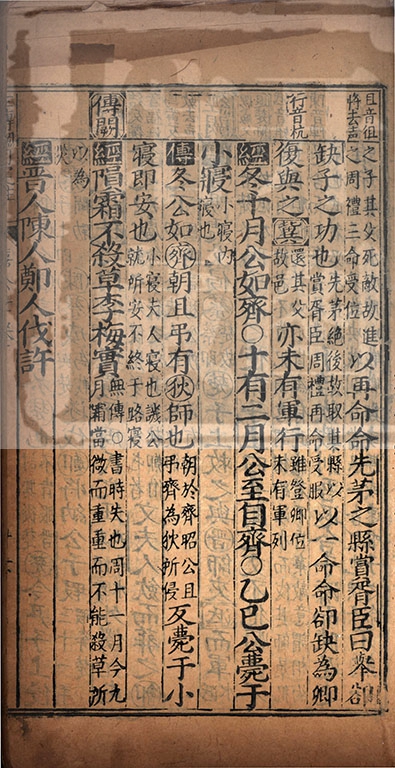 且音徂
將去声
之子其父死敵故進
之周禮二命受位
以再命命先茅之縣賞胥臣曰舉郤
缺子之功也
先茅絕後故取其縣以
賞胥臣周禮再命受服
以一命命卻缺為卿
行音杭
復與之冀
還其父
故邑
亦未有軍行
雖登卿位
未有軍列
經冬十月公如齊○十有二月公至自齊○乙巳公薨于
小寢
小寢內
寢也
傳冬公如齊朝且弔有狄師也
朝於齊昭公且
弔齊為狄所侵
反薨于小
寢即安也
小寢夫人寢也譏公
就所安不終于路寢
傳闕
經隕霜不殺草李梅實
無傳○書時失也周十一月今九
月霜當微而重重而不能殺草所
以為
災
經晋人陳人鄭人伐許